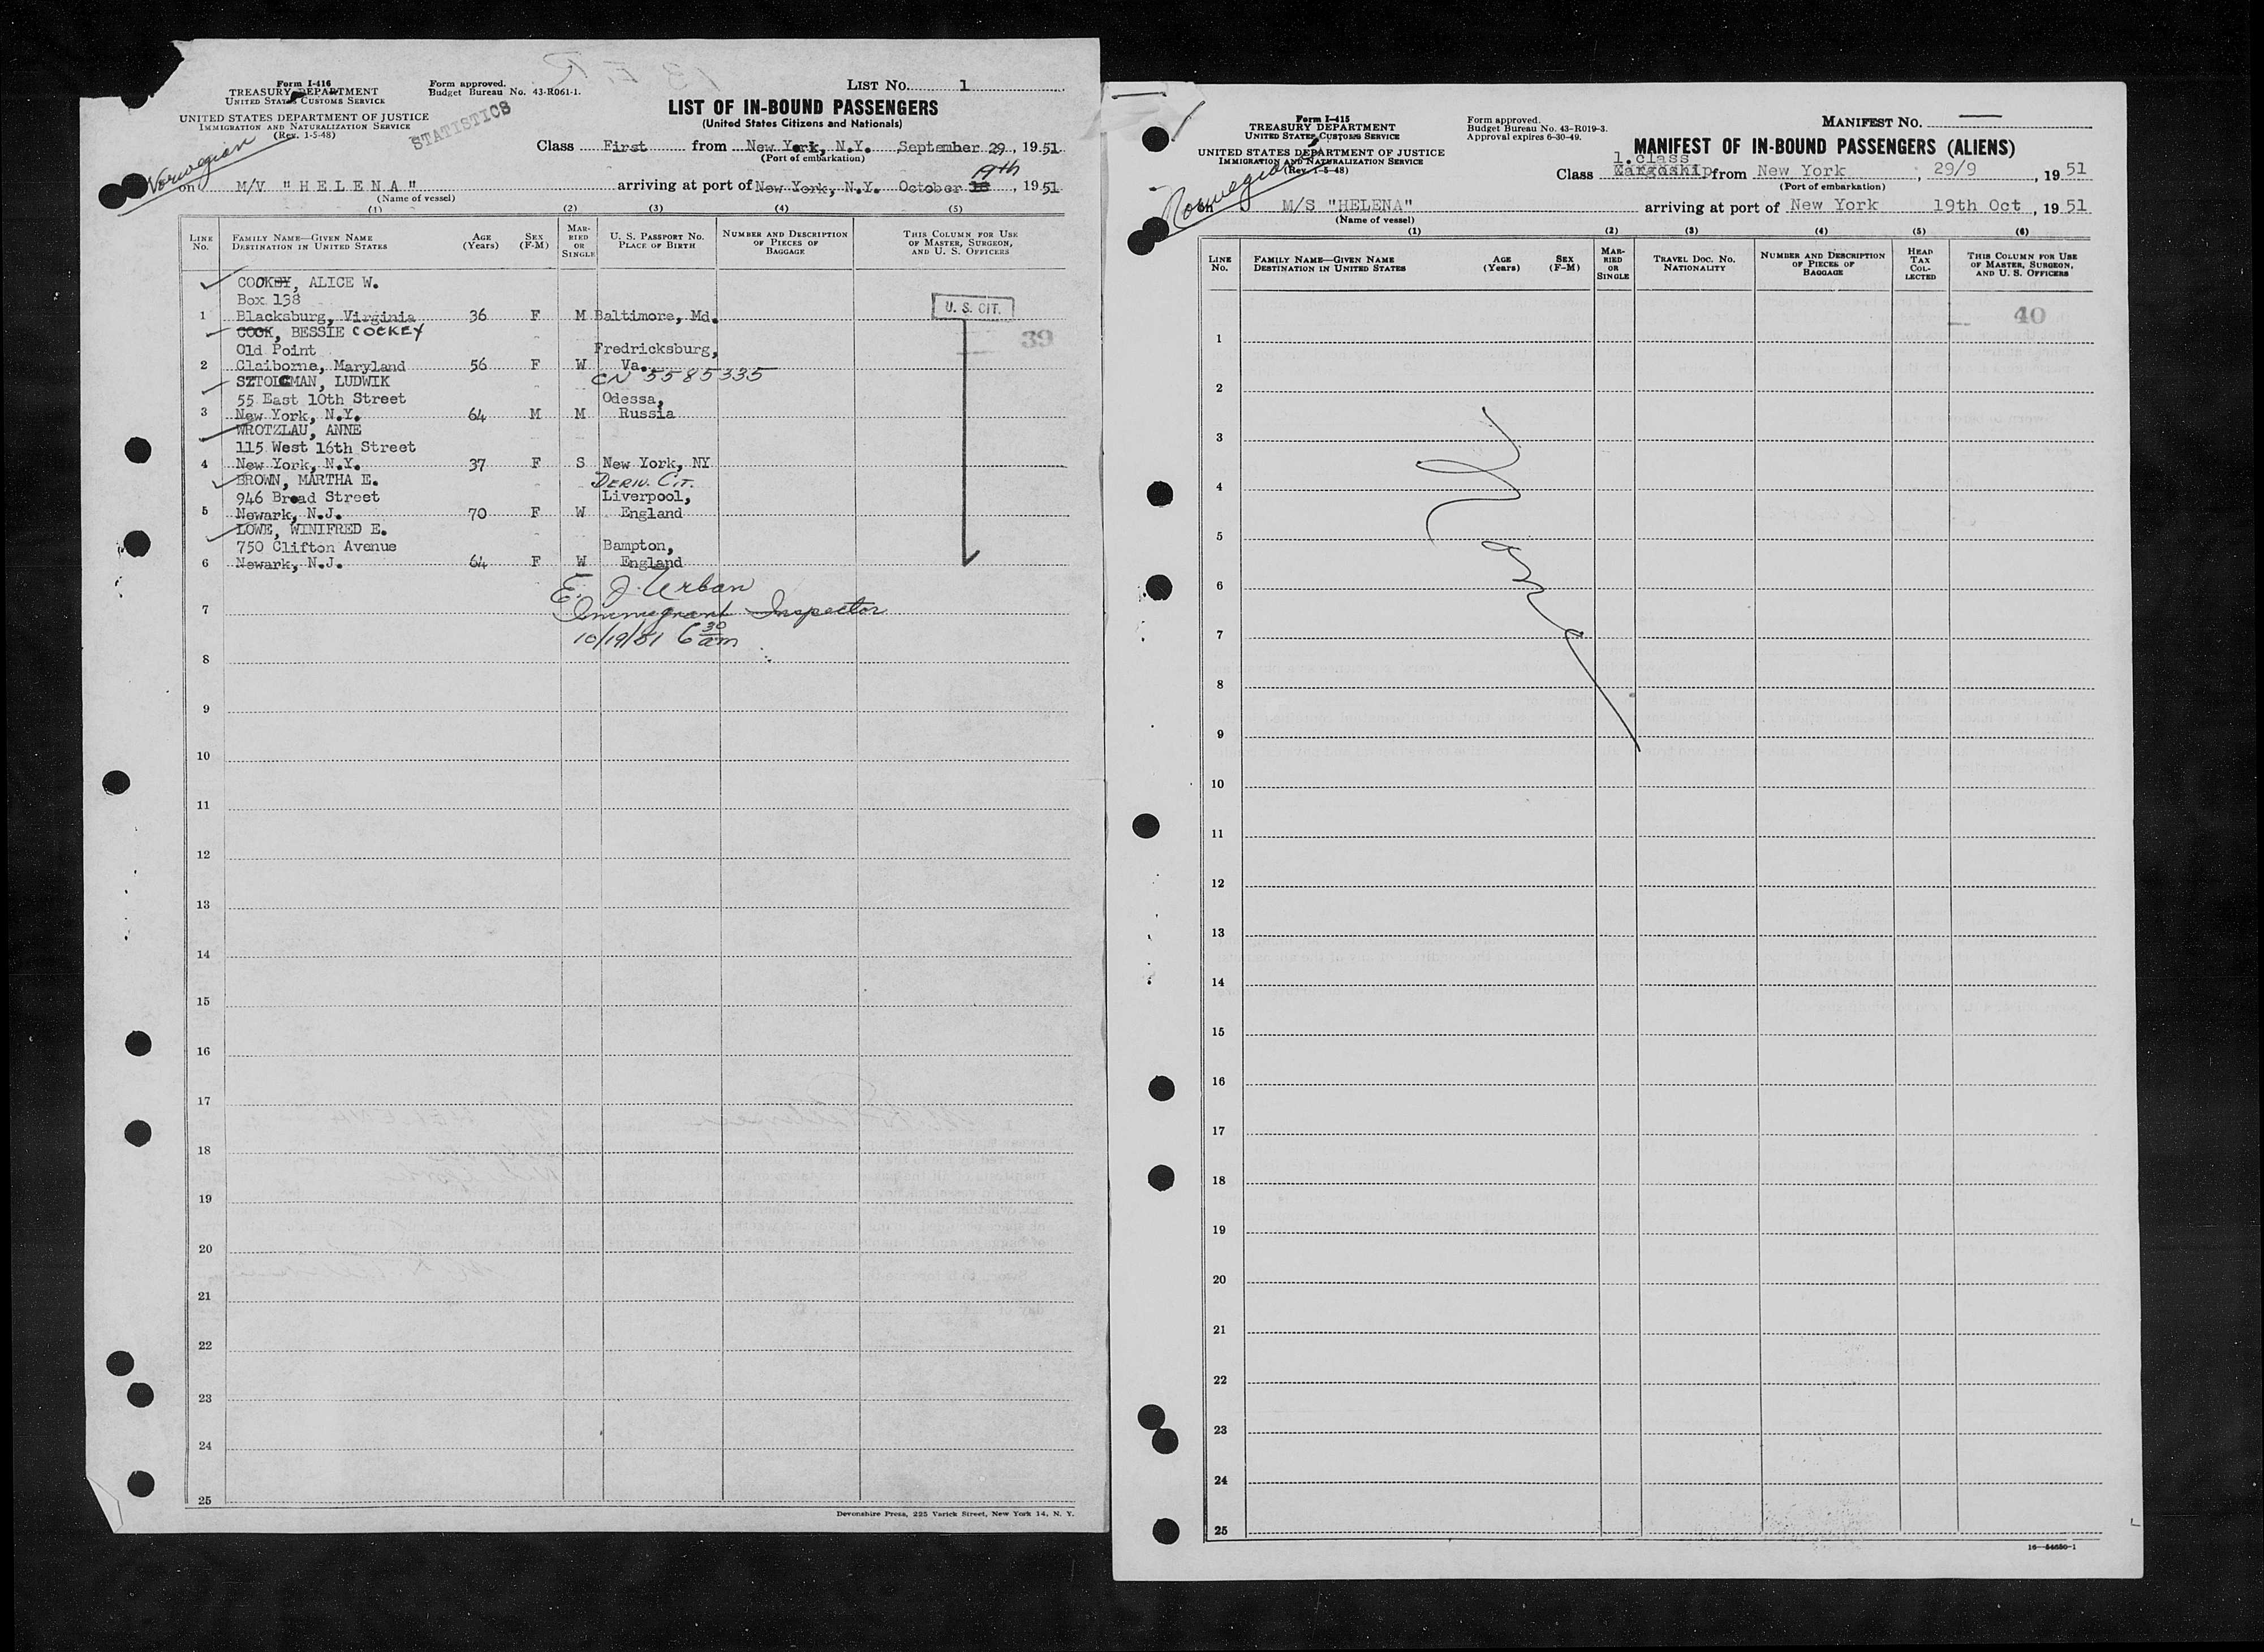 Form I-416
TREASURY DEPARTMENT
UNITED STATES CUSTOMS SERVICE
UNITED STATES DEPARTMENT OF JUSTICE
IMMIGRATION AND NATURALIZATION SERVICE
(Rev. 1-5-48)
Form approved.
Budget Bureau No. 43-R061-1.
STATISTICS
LIST No. 1
LIST OF IN-BOUND PASSENGERS
(United States Citizens and Nationals)
Class First from New York, N.Y. September 29, 1951
(Port of embarkation)
Norwegian
on M/V "HELENA" arriving at port of New York, N.Y. October 18 19th, 1951
(Name of vessel)
(1) (2) (3) (4) (5)
LINE No. FAMILY NAME—GIVEN NAME DESTINATION IN UNITED STATES AGE (Years) SEX (F-M) MARRIED OR SINGLE U. S. PASSPORT No. PLACE OF BIRTH NUMBER AND DESCRIPTION OF PIECES OF BAGGAGE THIS COLUMN FOR USE OF MASTER, SURGEON, AND U. S. OFFICERS
COOKEY, ALICE W.
Box 138
1 Blacksburg, Virginia 36 F M Baltimore, Md. U. S. CIT.
COOK, BESSIE COCKEY
39
Old Point Fredricksburg,
2 Claiborne, Maryland 56 F W Va.
SZTOLCMAN, LUDWIK CN 5585335
55 East 10th Street Odessa,
3 New York, N.Y. 64 M M Russia
WROTZLAU, ANNE
115 West 16th Street
4 New York, N.Y. 37 F S New York, NY
BROWN, MARTHA E. DERIV. CIT.
946 Broad Street Liverpool,
5 Newark, N.J. 70 F W England
LOWE, WINIFRED E.
750 Clifton Avenue Bampton,
6 Newark, N.J. 64 F W England
E. J. Urban
7 Immigrant Inspector
10/19/51 6 30 am
8
9
10
11
12
13
14
15
16
17
18
19
20
21
22
23
24
25
Devonshire Press, 225 Varick Street, New York 14, N. Y.
Form I-415
TREASURY DEPARTMENT
UNITED STATES CUSTOMS SERVICE
UNITED STATES DEPARTMENT OF JUSTICE
IMMIGRATION AND NATURALIZATION SERVICE
(Rev. 1-5-48)
Form approved.
Budget Bureau No. 43-R019-3.
Approval expires 6-30-49.
MANIFEST No.
MANIFEST OF IN-BOUND PASSENGERS (ALIENS)
1.class
Class Cargoship from New York, 29/9, 1951
(Port of embarkation)
Norwegian
on M/S "HELENA" arriving at port of New York 19th Oct, 1951
(Name of vessel)
(1) (2) (3) (4) (5) (6)
LINE No. FAMILY NAME—GIVEN NAME DESTINATION IN UNITED STATES AGE (Years) SEX (F-M) MARRIED OR SINGLE TRAVEL DOC. No. NATIONALITY NUMBER AND DESCRIPTION OF PIECES OF BAGGAGE HEAD TAX COLLECTED THIS COLUMN FOR USE OF MASTER, SURGEON, AND U. S. OFFICERS
40
1
2
3
4
5
6
7
8
9
10
11
12
13
14
15
16
17
18
19
20
21
22
23
24
25
16—54650-1